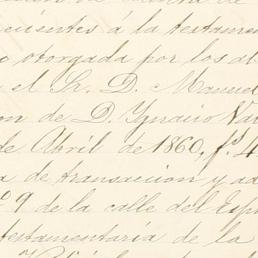 cientes á la testamen
o otorgada por los al
y el Sr. D. Manuel
on de D. Ygnacio Va
de Abril de 1860, fs. 4
a de transaccion y ad
nº 9 de la calle del Esp
testamentaría de la